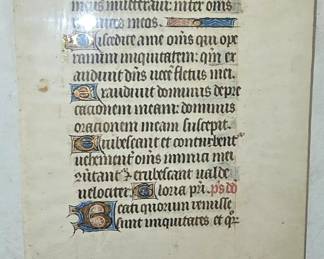 meus inveteravi inter om̄s
inimicos meos.
Discedite a me om̄s qui ope
ramini iniquitatem: qm̄ ex
audivit dn̄s vocē fletus mei.
Exaudivit dominus depre
cationem meam: dominus
orationem meam suscepit.
Erubescant et conturbent᷑
vehement᷑ om̄s inimici mei
9vertant᷑ ⁊ erubescant valde
velociter. Gloria pr̄i. p̄s dd
Beati quorum remisse
sunt iniquitates et q̄r